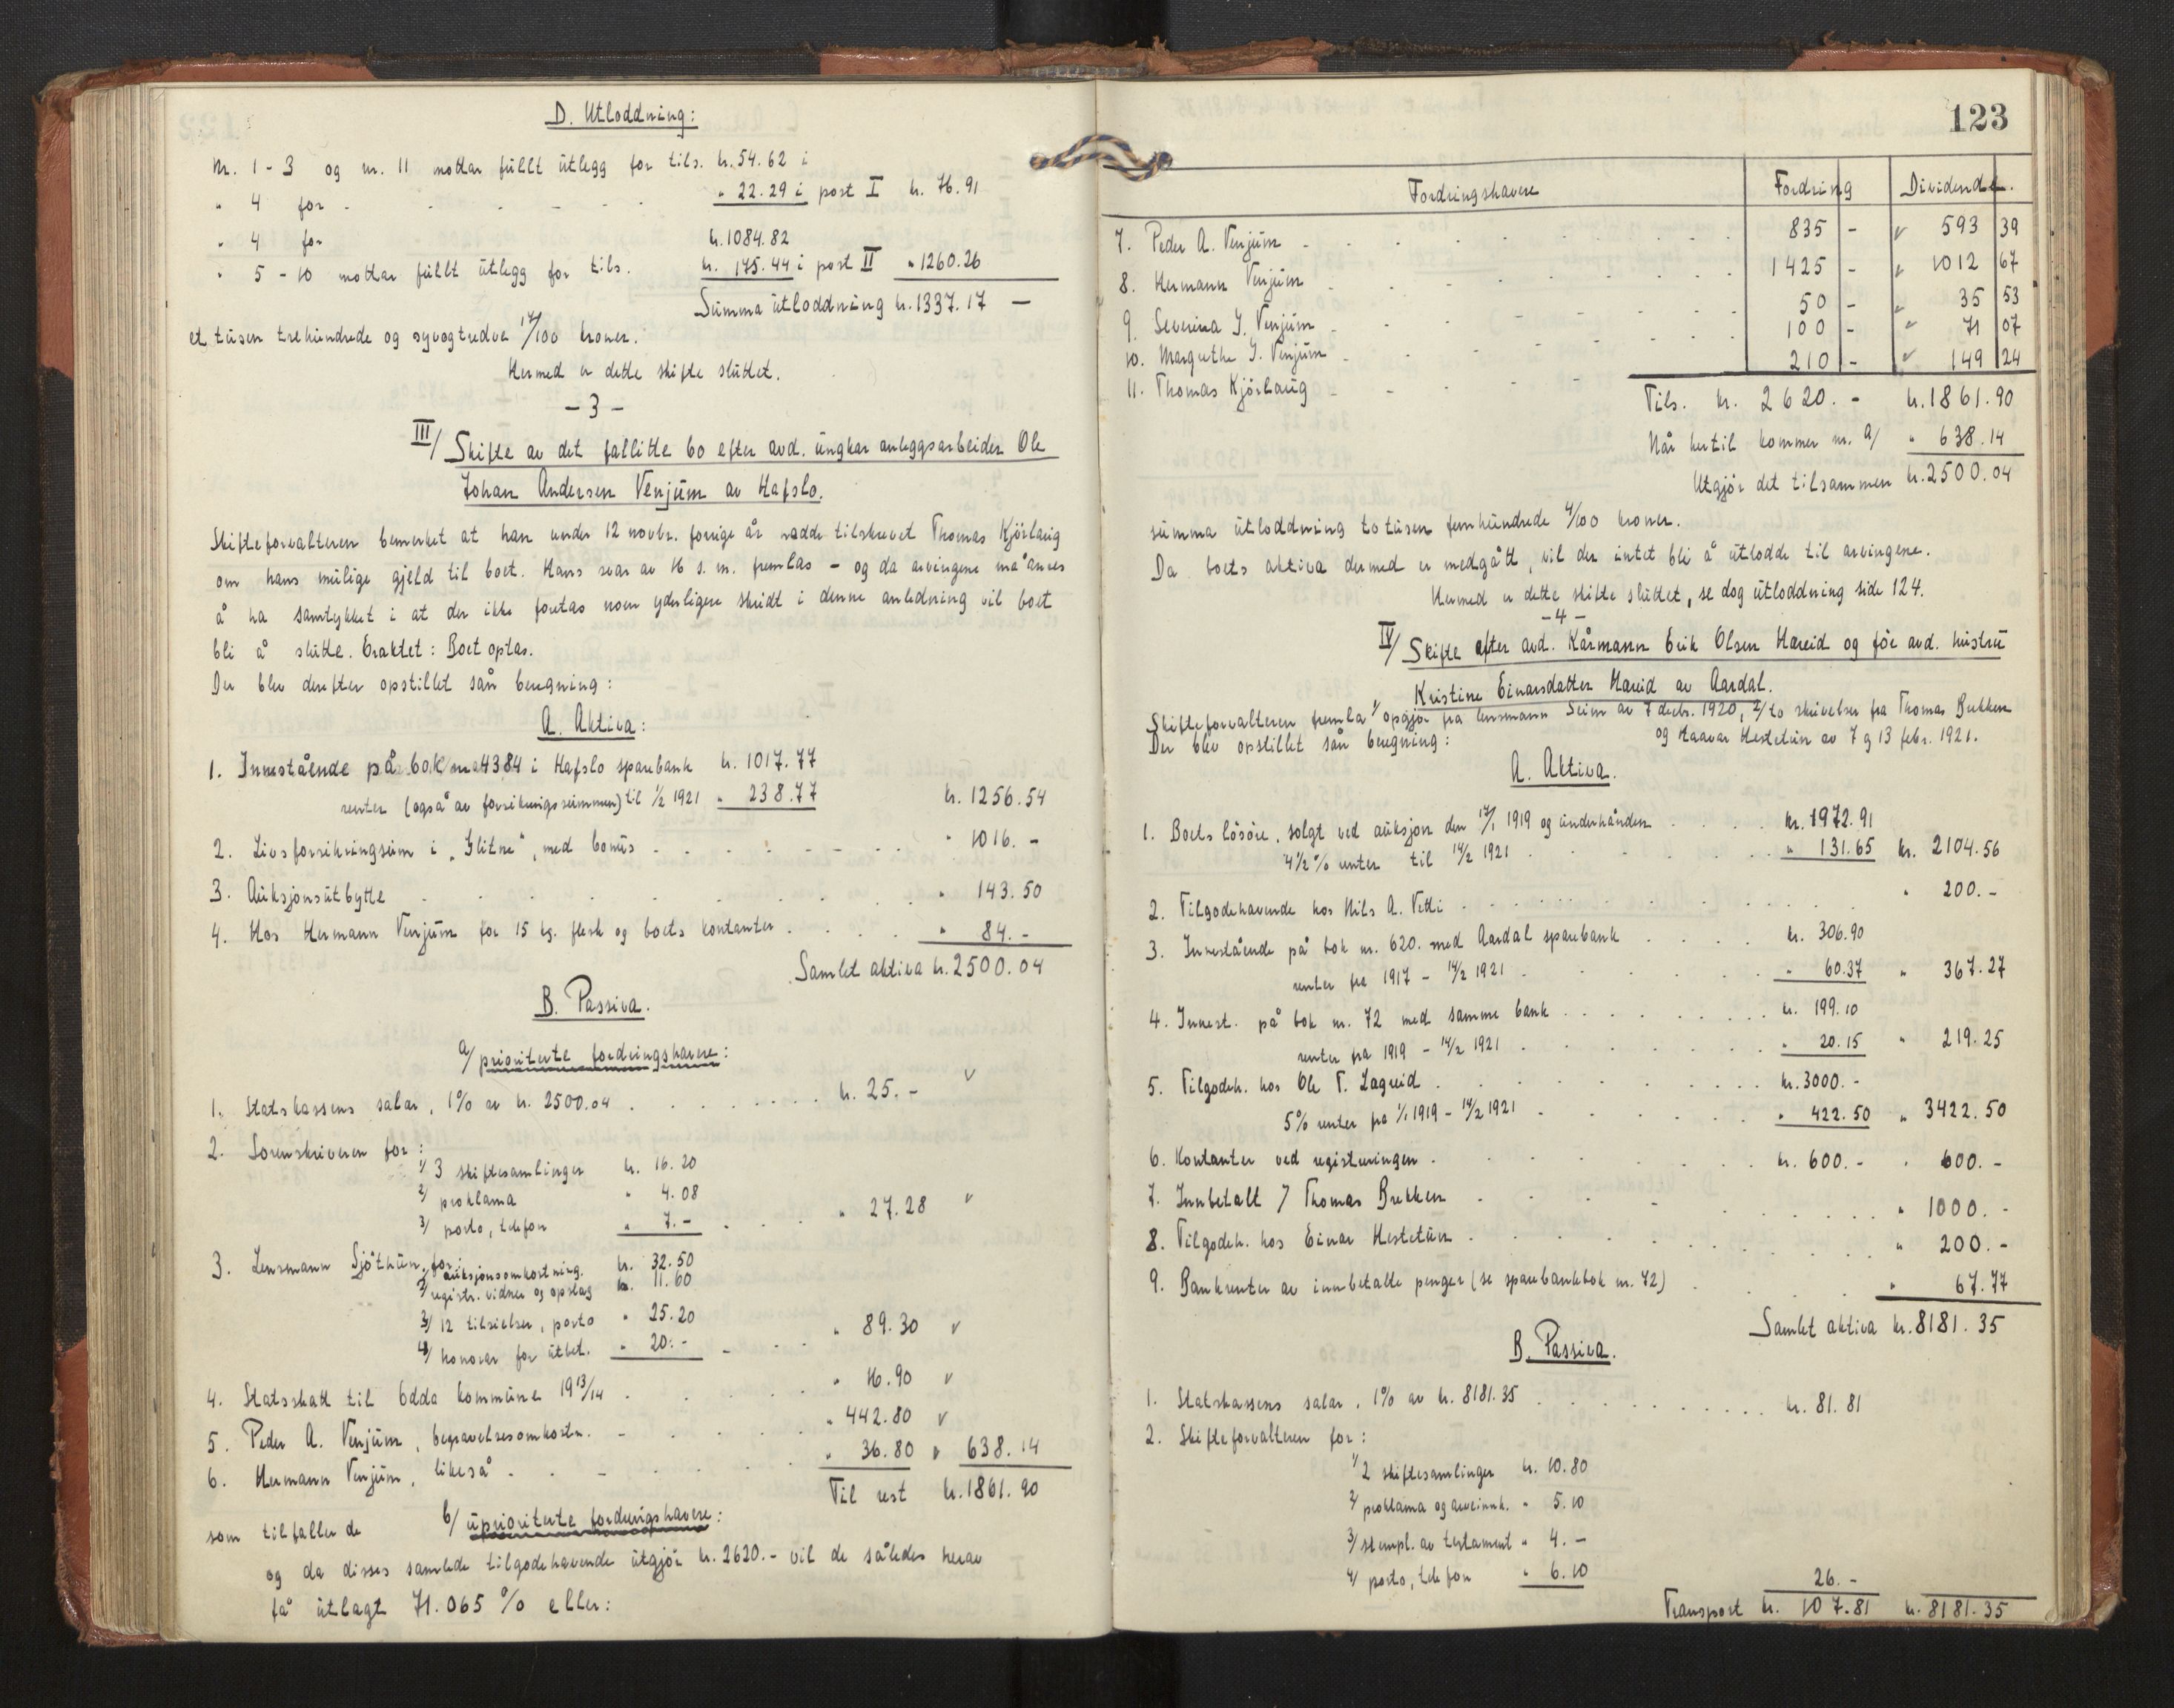 D. Utloddning:
Nr. 1 - 3 og nr. 11 mottar fullt utlegg for tils. kr. 54.62 i
" 4 for - - - - - - " 22.29 i post I kr. 76.91
" 4 for kr. 1084.82
" 5 - 10 mottar fullt utlegg for tils. kr. 175.44 i post II " 1260.26
Summa utloddning kr. 1337.17 —
et tusen trehundrede og syvogtredve 17/100 kroner.
Hermed er dette skifte sluttet.
- 3 -
III/ Skifte av det fallitte bo efter avd. ungkar anleggsarbeider Ole
Johan Andersen Venjum av Hafslo.
Skifteforvalteren bemerket at han under 12 novbr. forrige år hadde tilskrevet Thomas Kjörlaug
om hans mulige gjeld til boet. Hans svar av 16 s. m. fremlas - og da arvingene må anses
å ha samtykket i at der ikke foretas noen yderligere skridt i denne anledning vil boet
bli å slutte. Eraktet: Boet optas.
Der blev derefter opstillet sån beregning:
A. Aktiva:
1. Innestående på bok nr 4384 i Hafslo sparebank kr. 1017.77
renter (også av forsikringssummen) til 1/2 1921 " 238.77 kr. 1256.54
2. Livsforsikringsum i "Glitne", med bonus - - - - " 1016. -
3. Auksjonsutbytte . . . . " 143.50
4. Hos Hermann Venjum for 15 kg. flesk og boets kontanter . . . . " 84. -
Samlet aktiva kr. 2500.04
B. Passiva.
a/ prioriterte fordringshavere:
1. Statskassens salar, 1% av kr. 2500.04 . . . . kr. 25. - v
2. Sorenskriveren for:
1/ 3 skiftesamlinger kr. 16.20
2/ proklama " 4.08
3/ porto, telefon " 7. - . . . . " 27.28 v
3. Lensmann Sjøthun, for
1/ auksjonsomkostning. kr. 32.50
2/ registr. vidner og opslag kr. 11.60
3/ 12 tilsielser, porto " 25.20
4/ honorar for utbet. " 20.- - . . " 89.30 v
4. Statsskatt til Odda kommune 1913/14 . . . . " 16.90 v
5. Peder A. Venjum, begravelsesomkostn. - . . . " 442.80 v
6. Hermann Venjum, likeså - . . . " 36.80 v 638.14
Til rest kr. 1861.90
som tilfaller de b/ uprioriterte fordringshavere:
og da disses samlede tilgodehavende utgjör kr. 2620.- vil de således herav
få utlagt 71.065 % eller:
123
Fordringshavere Fordring Dividende.
7. Peder A. Venjum - . . . 835 - v 593 39
8. Hermann Venjum . . . 1425 - v 1012 67
9. Severina J. Venjum . . . 50 - v 35 53
10. Margrethe J. Venjum - . . . 100 - v 71 07
11. Thomas Kjörlaug - . . . 210 - v 149 24
Tils. kr. 2620. - kr. 1861.90
Når hertil kommer nr. a/ " 638.14
Utgjör det tilsammen kr. 2500.04
summa utloddning totusen femhundrede 4/100 kroner.
Da boets aktiva dermed er medgått, vil der intet bli å utlodde til arvingene.
Hermed er dette skifte sluttet, se dog utloddning side 124.
- 4 -
IV/ Skifte efter avd. Kårmann Erik Olsen Hareid og för avd. hustru
Kristine Einarsdatter Hareid av Aardal.
Skifteforvalteren fremla 1/ opgjör fra lensmann Seim av 7 decbr. 1920, 2/ to skrivelser fra Thomas Brekken
og Haavar Hestetun av 7 og 13 febr. 1921.
Der blev opstillet sån beregning:
A. Aktiva.
1. Boets lösöre, solgt ved auksjon den 17/1 1919 og underhånden . . . . kr. 1972.91
4 1/2 % renter til 14/2 1921 . . . . " 131.65 kr. 2104.56
2. Tilgodehavende hos Nils A. Vetti . . . . " 200. -
3. Innestående på bok nr. 620. med Aardal sparebank . . . . kr. 306.90
renter fra 1917 - 14/2 1921 . . . . " 60.37 " 367.27
4. Innest. på bok nr. 72 med samme bank . . . . kr. 199.10
renter fra 1919 - 14/2 1921 . . . . " 20.15 " 219.25
5. Tilgodeh. hos Ole T. Lagreid . . . . kr. 3000. -
5% renter fra 1/1 1919 - 14/2 1921 . . . . " 422.50 " 3422.50
6. Kontanter ved registreringen . . . . kr. 600. - " 600. -
7. Innbetalt 7 Thomas Brekken . . . . " 1000. -
8. Tilgodeh. hos Einar Hestetun . . . . " 200. -
9. Bankrenter av innbetalte penger (se sparebankbok nr. 72) . . . . " 67.77
Samlet aktiva kr. 8181.35
B. Passiva.
1. Statskassens salar, 1% av kr. 8181.35 . . . . kr. 81.81
2. Skifteforvalteren for:
1/ 2 skiftesamlinger kr. 10.80
2/ proklama og arveinnk. " 5.10
3/ stempl. av testament " 4. -
4/ porto, telefon " 6.10 26. -
Transport kr. 107.81 kr. 8181.35